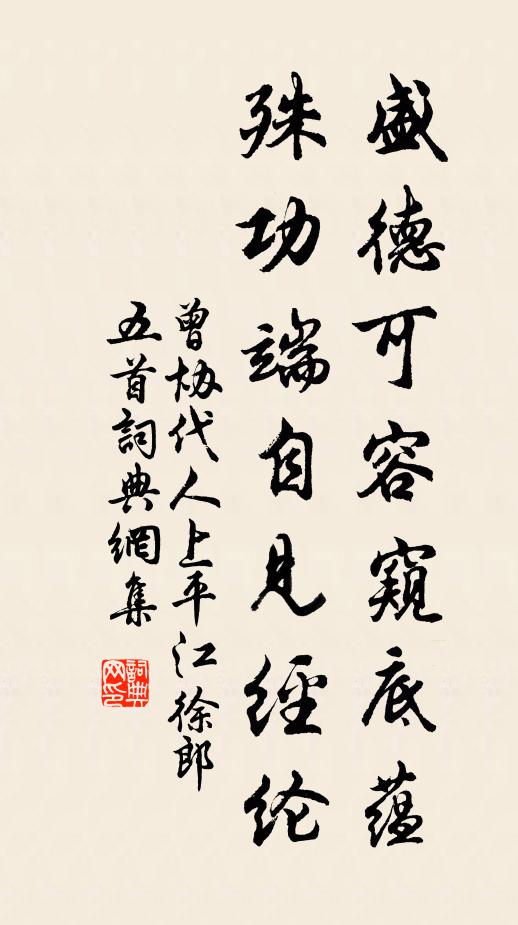 盛德可容窺底蘊
殊功端自見經纶
曾協代人上平江徐郎
五首詞典網集
詞典网印